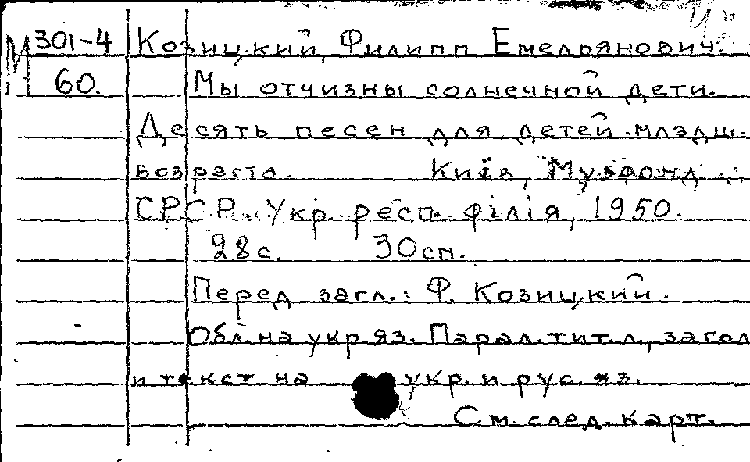 М 301-4 Козицкий, Филипп Емельянович.
60. Мы отчизны солнечной дети.
Десять песен для детей младш.
возраста. Київ, Музфонд
СРСР. Укр. респ. філія, 1950.
28 с. 30 см.
Перед загл.: Ф. Козицкий.
Обл. на укр. яз. Парал. тит. л., загол.
и текст на укр. и рус. яз.
См. след. карт.